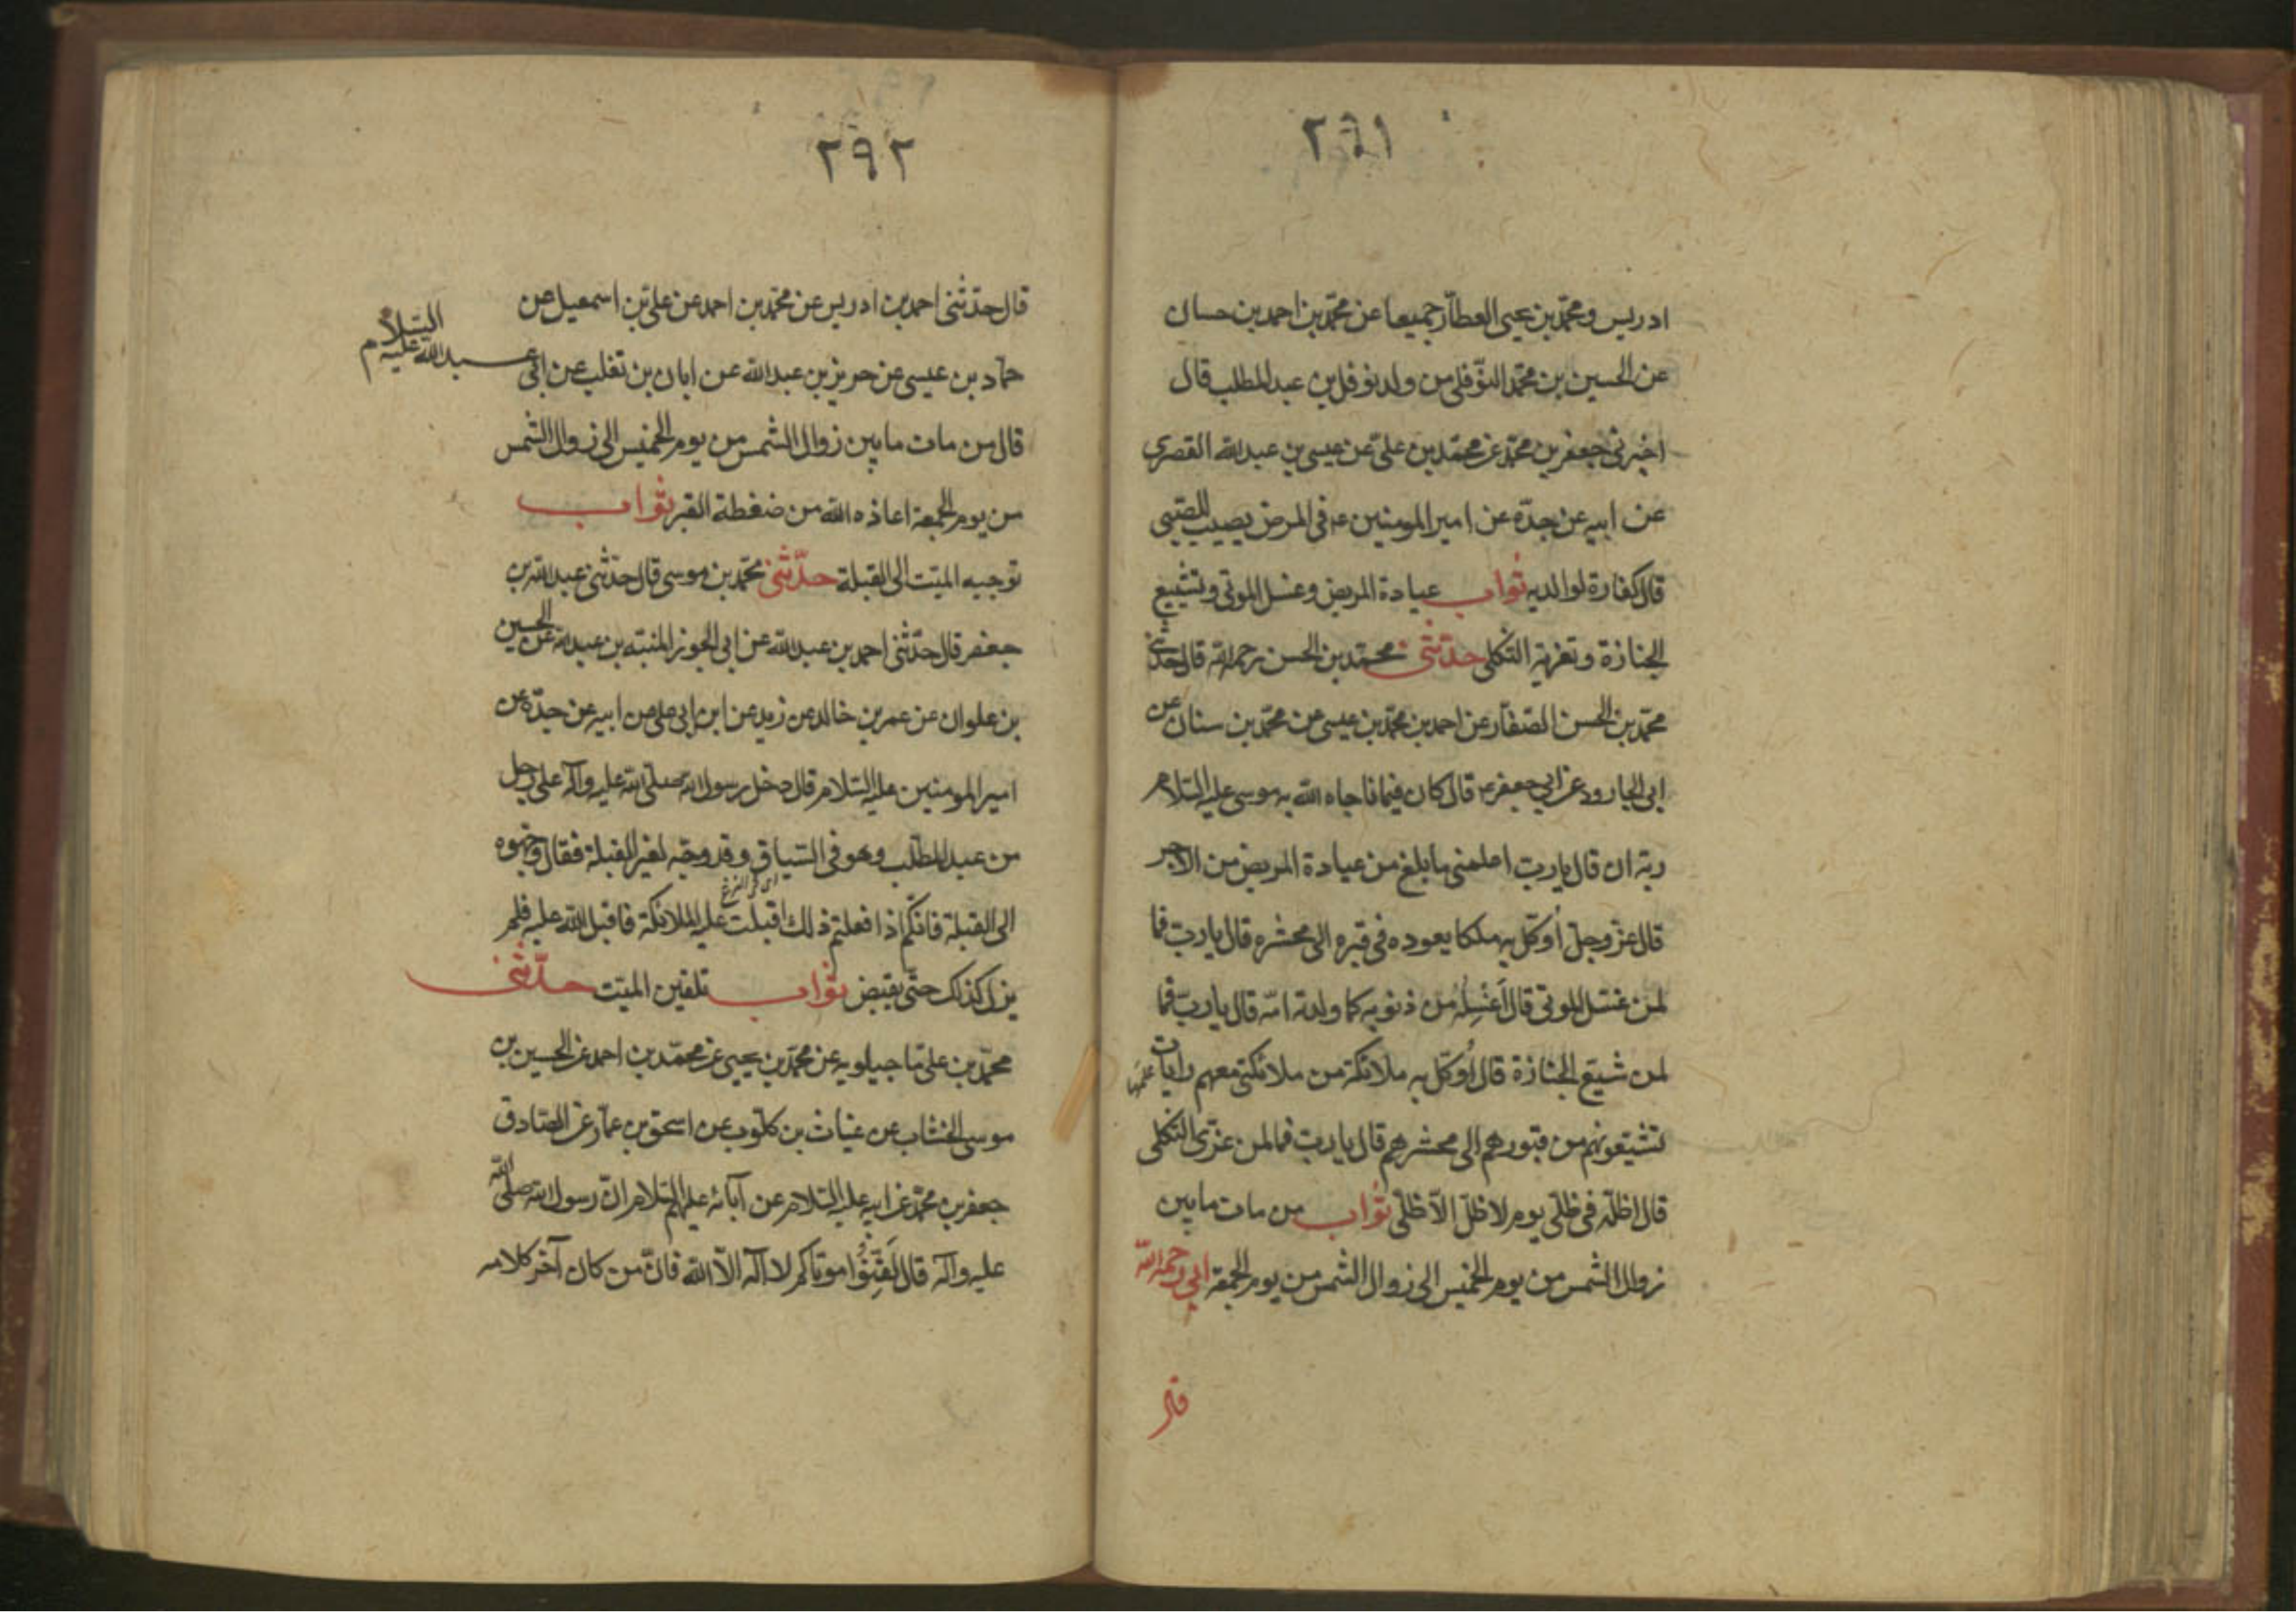 ٢٩١
ادريس ومحمّد بن يحيى العطّار جميعا عن محمّد بن احمد بن حسان
عن الحسين بن محمّد النوّفلى من ولد نوفل بن عبد المطلب قال
اخبرنى جعفر بن محمّد عن محمّد بن علىّ عن عيسى بن عبد الله القصرى
عن ابيه عن جدّه عن امير المومنين عه فى المرض يصيب الصّبى
قال كفارة لوالديه ثواب عيادة المريض وغسل الموتى وتشييع
الجنازة وتعزية الثكلى حدّثنى محمّد بن الحسن رحمه الله قال حدّثنى
محمّد بن الحسن الصّفّار عن احمد بن محمّد بن عيسى عن محمّد بن سنان عن
ابى الجارود عن ابى جعفر عه قال كان فيما ناجاه الله به موسى عليه السّلام
ربّه ان قال يا ربّ اعلمنى ما بلغ من عيادة المريض من الاجر
قال عزّ وجلّ اُوكّل به ملكا يعوده فى قبره الى محشره قال يا ربّ فما
لمن غسّل الموتى قال اَغْسِلُه من ذنوبه كما ولدته امّه قال يا ربّ فما
لمن شيّع الجنازة قال اُوكّل به ملائكة من ملائكتى معهم رايات
تشيّعونهم من قبورهم الى محشرهم قال يا ربّ فما لمن عزّى الثكلى
قال اظلّه فى ظلّى يوم لا ظلّ الّا ظلّى ثواب من مات ما بين
زوال الشمس من يوم الخميس الى زوال الشمس من يوم الجمعة ابى رحمه الله
قال
٢٩٢
قال حدّثنى احمد بن ادريس عن محمّد بن احمد عن علىّ بن اسمعيل عن
حمّاد بن عيسى عن حريز بن عبد الله عن ابان بن تغلب عن ابى عبد الله عليه السّلام
قال من مات ما بين زوال الشمس من يوم الخميس الى زوال الشمس
من يوم الجمعة اعاذه الله من ضغطة القبر ثواب
توجيه الميّت الى القبلة حدّثنى محمّد بن موسى قال حدّثنى عبد الله بن
جعفر قال حدّثنى احمد بن عبد الله عن ابى الجوزا المنبّه بن عبد الله عن الحسين
بن علوان عن عمر بن خالد عن زيد عن ابن ابى على عن ابيه عن جدّه عن
امير المومنين عليه السّلام قال دخل رسول الله صلّى الله عليه وآله على رجل
من عبد المطّلب وهو فى السّياق وقد وجّه لغير القبلة فقال وجّهوه
اى فى النزع
الى القبلة فانّكم اذا فعلتم ذلك اقبلت عليه الملائكة فاقبل الله عليه فلم
يزل كذلك حتّى يقبض ثواب تلقين الميّت حدّثنى
محمّد بن علىّ ماجيلويه عن محمّد بن يحيى عن محمّد بن احمد عن الحسين بن
موسى الخشاب عن غياث بن كلّوب عن اسحق بن عمّار عن الصّادق
جعفر بن محمّد عن ابيه عليه السّلام عن آبائه عليهم السّلام انّ رسول الله صلّى الله
عليه وآله قال لَقِّنُوا موتاكم لا اله الّا الله فانّ من كان آخر كلامه